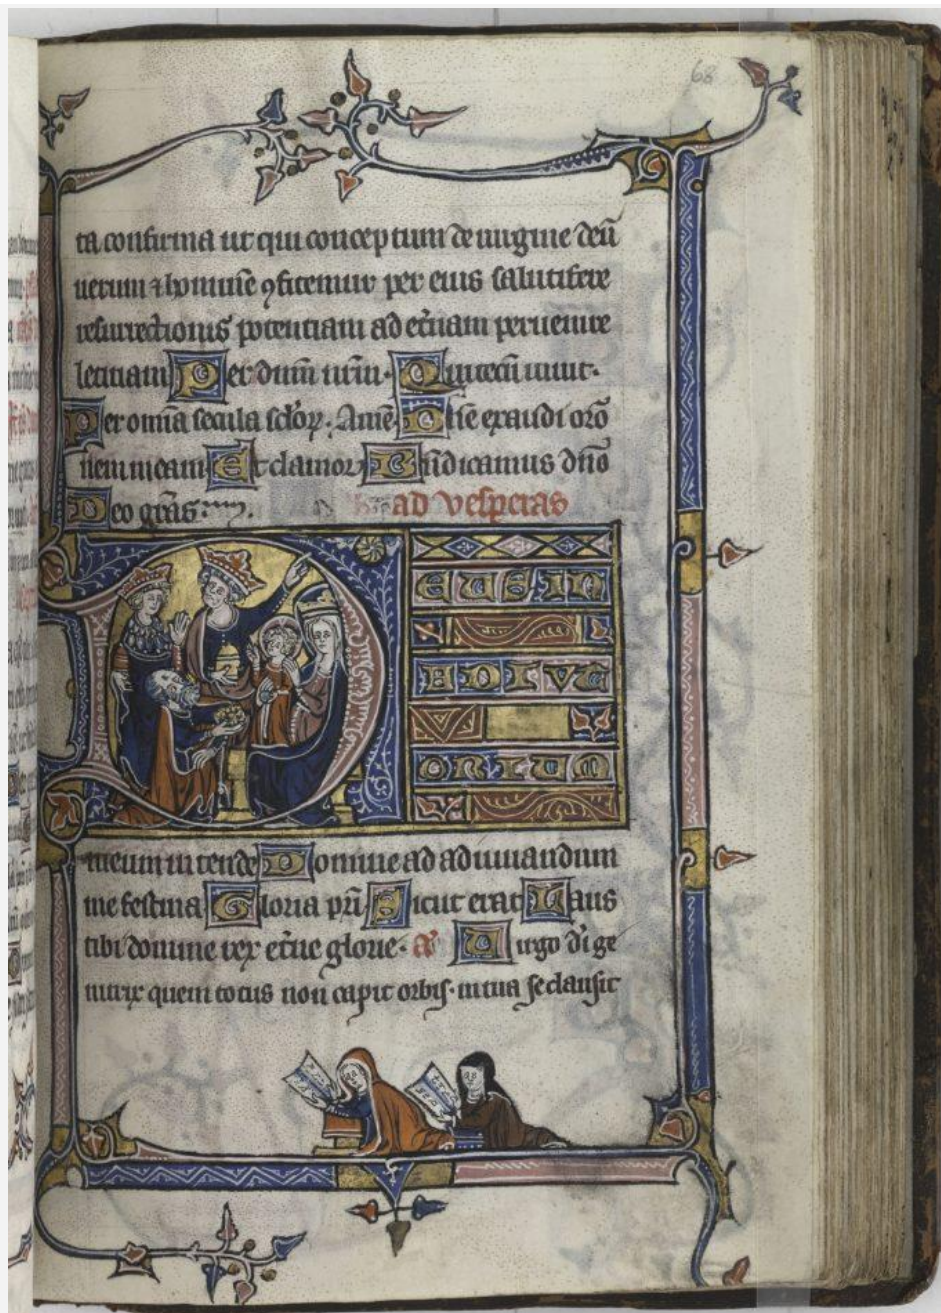 68
ta confirma ut qui conceptum de uirgine deū
uerum & hominē ꝯfitemur per eius salutifere
resurrectionis potentiam ad etnam peruenire
letitiam Per dnm nrm · Qui tecū uiuit ·
Per omīa secula sclorꝝ · Amē · Dne exaudi oro
nem meam Et clamor Bndicamus dno
Deo gras
ad vesperas
DEUS IN
ADIUT
ORIUM
meum intende Domine ad adiuuandum
me festina Gloria pri Sicut erat Laus
tibi domine rex etne glorie · a Uirgo di ge
nitrix quem totus non capit orbis · in tua se clausit